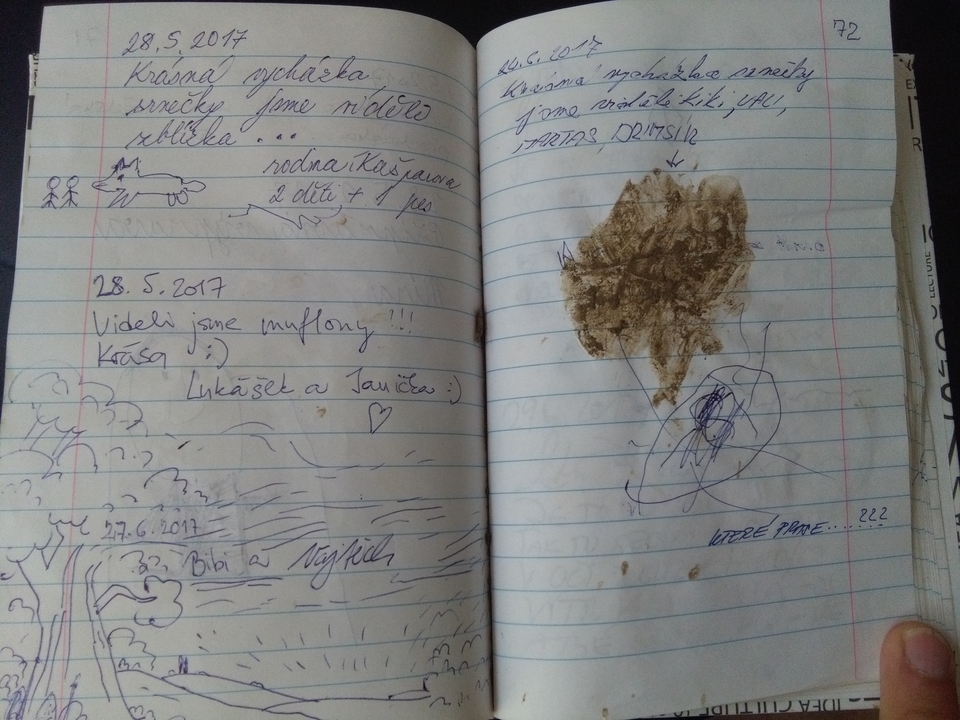 28.5.2017
Krásná vycházka
srnečky jsme viděli
zblízka ...
rodina Kašparova
2 děti + 1 pes
28.5.2017
Viděli jsme muflony !!!
Krása :)
Lukášek a Janička :)
27.6.2017
Bibi a Vojtěch
72
24.6.2017
Krásná vycházka srnečky
jsme viděli Kiki,
???
IDEA CULTURE